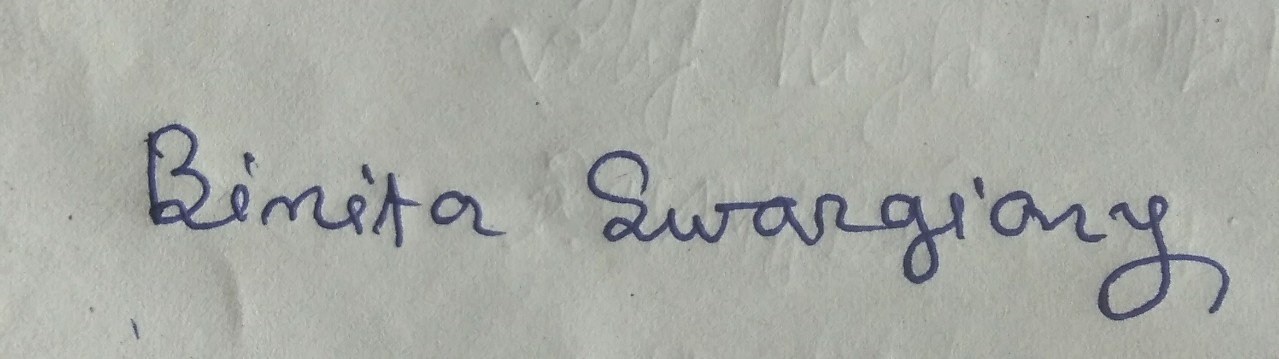 Binita Swargiary